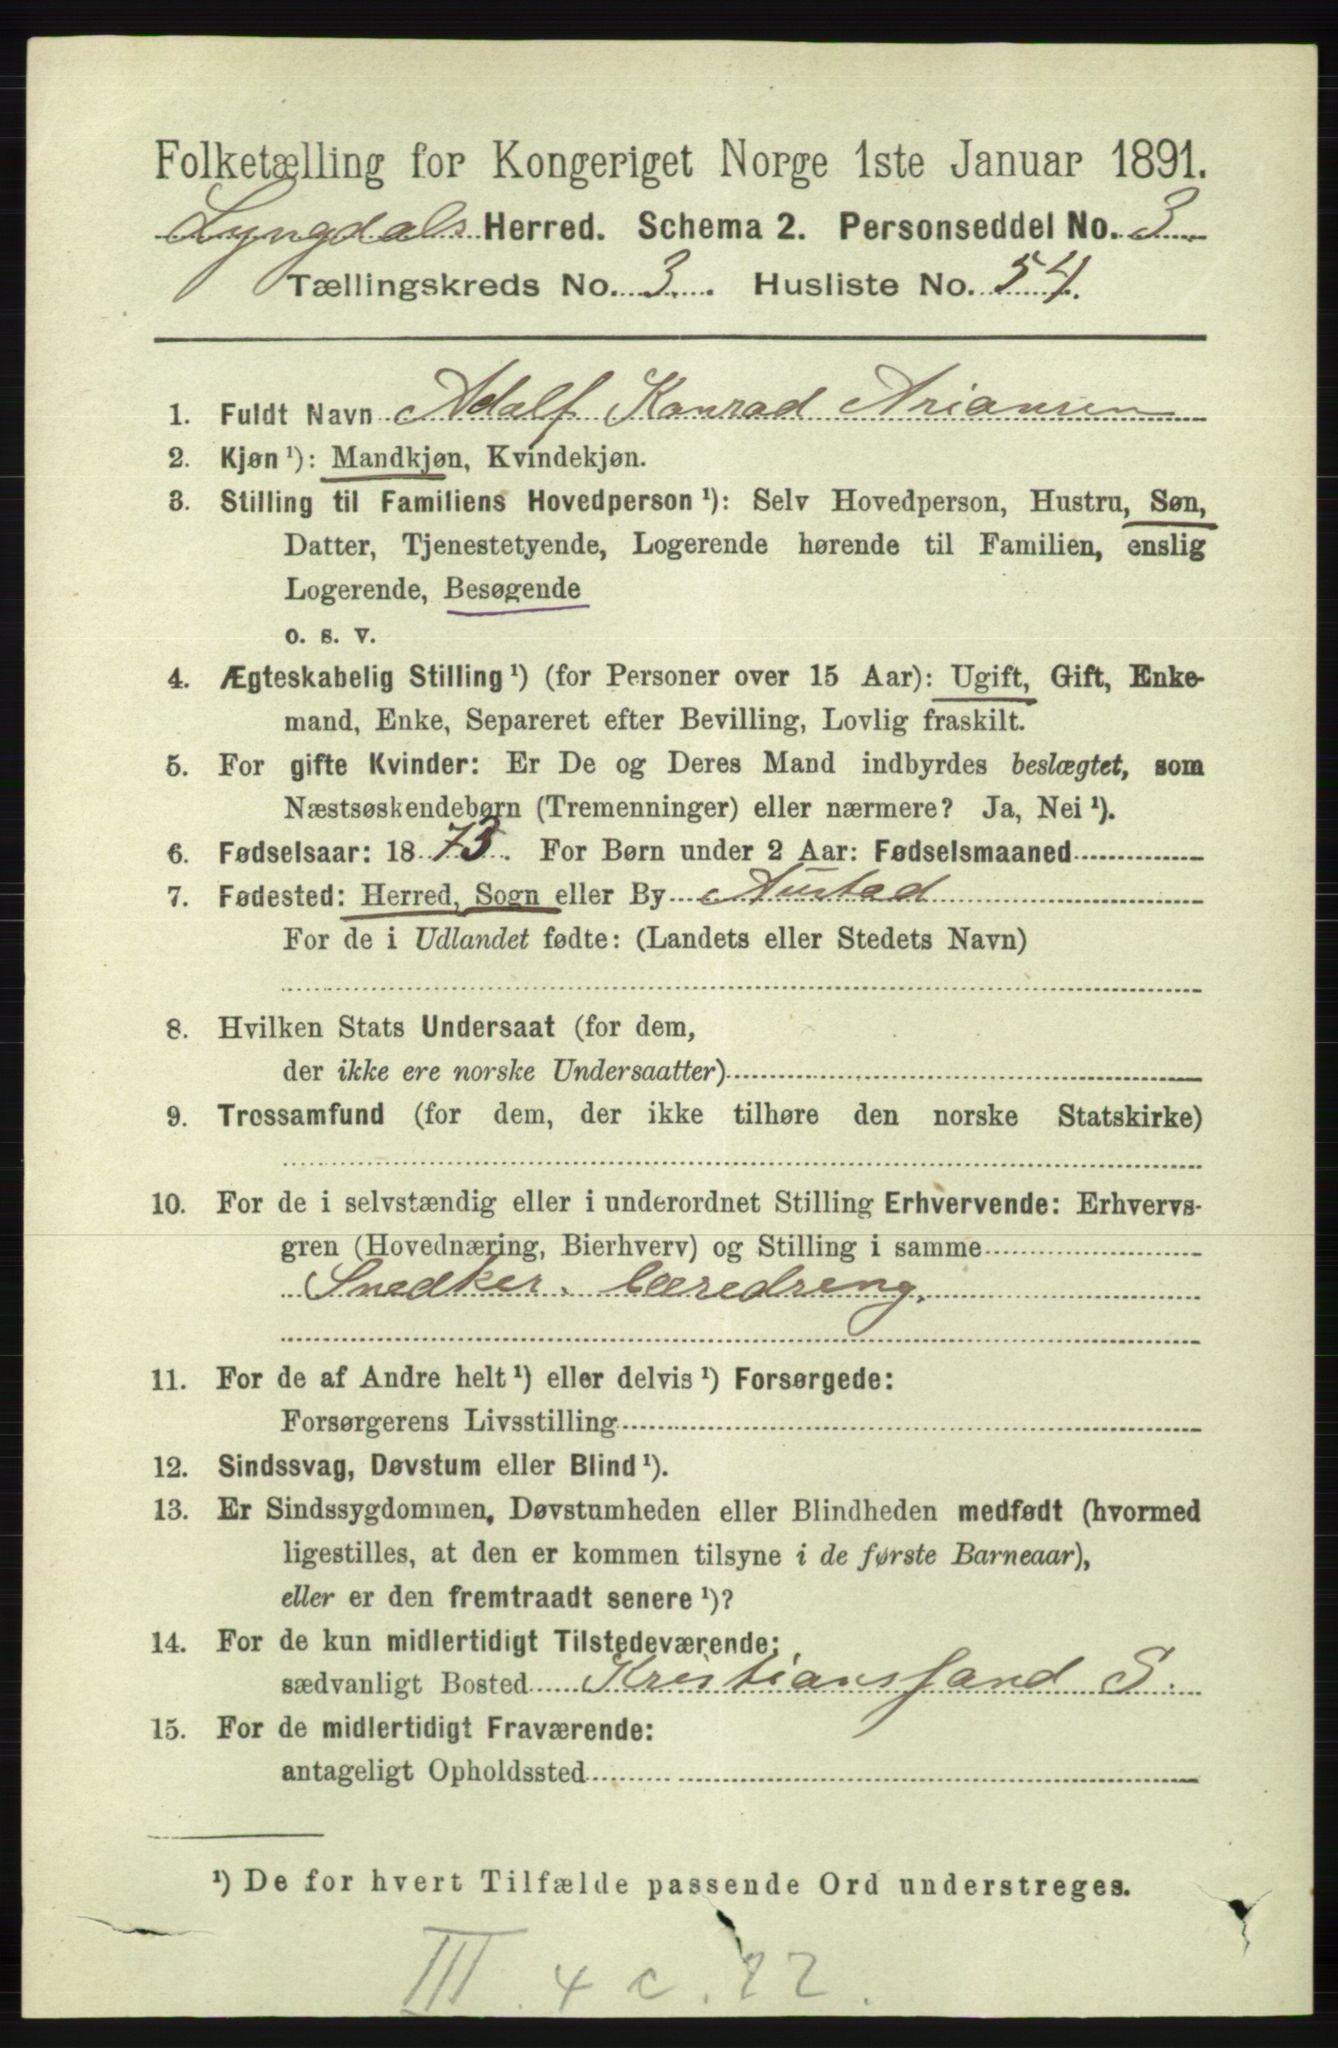 Folketælling for Kongeriget Norge 1ste Januar 1891.
Lyngdals Herred. Schema 2. Personseddel No. 3.
Tællingskreds No. 3. Husliste No. 54.
1. Fuldt Navn Adolf Konrad Ariansen
2. Kjøn¹): Mandkjøn, Kvindekjøn.
3. Stilling til Familiens Hovedperson¹): Selv Hovedperson, Hustru, Søn,
Datter, Tjenestetyende, Logerende hørende til Familien, enslig
Logerende, Besøgende
o. s. v.
4. Ægteskabelig Stilling¹) (for Personer over 15 Aar): Ugift, Gift, Enke-
mand, Enke, Separeret efter Bevilling, Lovlig fraskilt.
5. For gifte Kvinder: Er De og Deres Mand indbyrdes beslægtet, som
Næstsøskendebørn (Tremenninger) eller nærmere? Ja, Nei¹).
6. Fødselsaar: 1873. For Børn under 2 Aar: Fødselsmaaned
7. Fødested: Herred, Sogn eller By Austad
For de i Udlandet fødte: (Landets eller Stedets Navn)
8. Hvilken Stats Undersaat (for dem,
der ikke ere norske Undersaatter)
9. Trossamfund (for dem, der ikke tilhøre den norske Statskirke)
10. For de i selvstændig eller i underordnet Stilling Erhvervende: Erhvervs-
gren (Hovednæring, Bierhverv) og Stilling i samme
Snedker. Læredreng.
11. For de af Andre helt¹) eller delvis¹) Forsørgede:
Forsørgerens Livsstilling
12. Sindssvag, Døvstum eller Blind¹).
13. Er Sindssygdommen, Døvstumheden eller Blindheden medfødt (hvormed
ligestilles, at den er kommen tilsyne i de første Barneaar),
eller er den fremtraadt senere¹)?
14. For de kun midlertidigt Tilstedeværende:
sædvanligt Bosted Kristianssand S.
15. For de midlertidigt Fraværende:
antageligt Opholdssted
¹) De for hvert Tilfælde passende Ord understreges.
III. 4 c. 22.